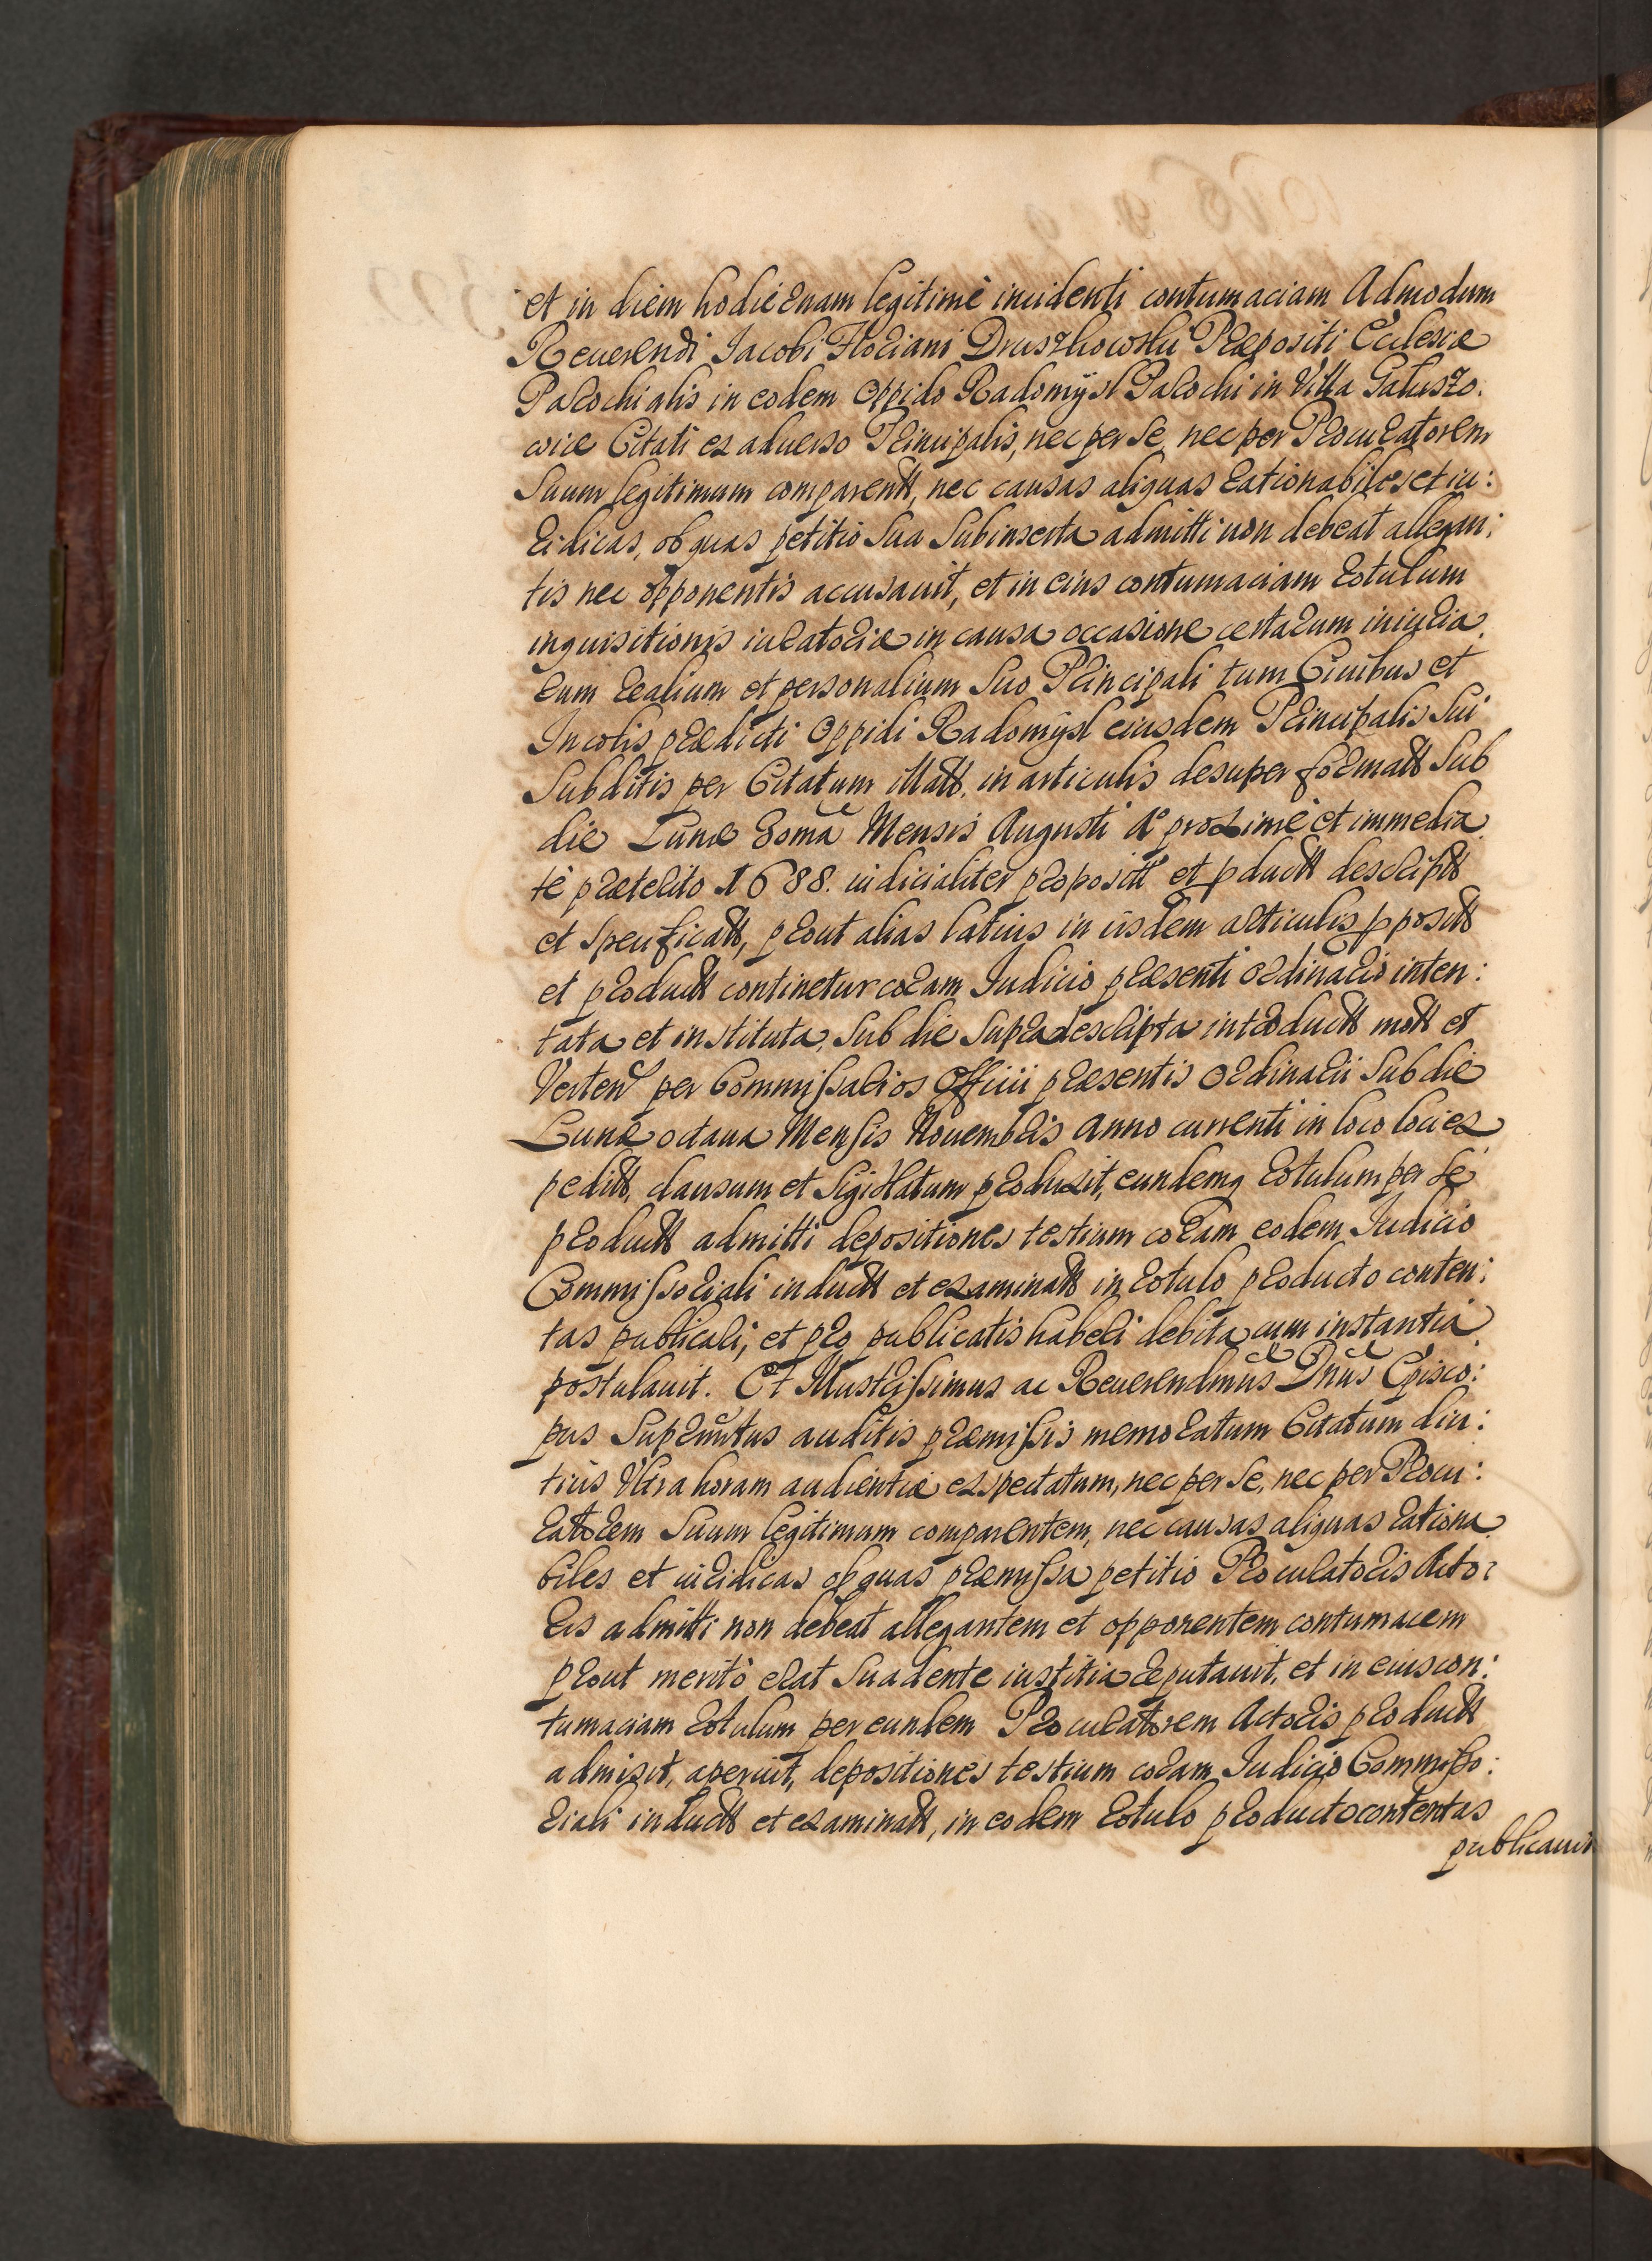 et in diem hodiernam legitimè incidenti contumaciam Admodum
Reuerendi Jacobi Floriani Druszkowski Præpositi Ecclesiæ
Parochialis in eodem Oppido Radomÿsl Parochi in Villa Galuszo:
wice Citati ex aduerso Principalis, nec per se, nec per Procuratorem
Suum legitimum comparentt, nec causas aliquas rationabiles et iu:
ridicas, ob quas petitio sua subinserta admitti non debeat allegan:
tis nec opponentis accusauit, et in eius contumaciam rotulum
inquisitionis iuratoriæ in causa occasione certarum iniuria
rum realium et personalium suo Principali tum Ciuibus et
Incolis prædicti Oppidi Radomÿsl eiusdem Principalis sui
Subditis per Citatum illatt. in articulis desuper formatt sub
die Lunæ Mensis Augusti Aº proximè et immedia
tè præterito 1688. iudicialiter propositt et pductt descriptt
et specificatt, prout alias latius in iisdem articulis ppositt
et productt continetur coram Iudicio præsenti ordinario inten:
tata et instituta, sub die supradescripta introductt mott et
Verten per Commissarios Officii præsentis Ordinarii sub die
Lunæ octaua Mensis Nouembris anno currenti in loco loci ex
peditt, clausum et Sigillatum produxit, eundemq rotulum per se
productt admitti depositiones testium coram eodem Iudicio
Commissoriali inductt et examinatt in rotulo producto conten:
tas publicari, et pro publicatis haberi debita cum instantia
postulauit. Et Illustrissimus ac Reuerendmus Dnus Episco:
pus Supranntus auditis præmissis memoratum Citatum diu:
tius Vltra horam audientiæ expectatum, nec per se, nec per Procu:
ratorem Suum legitimum comparentem, nec causas aliquas rationa
biles et iuridicas ob quas præmissa petitio Procuratoris Acto:
ris admitti non debeat allegantem et opponentem contumacem
prout meritò erat suadente iustitia reputauit, et in eius con:
tumaciam rotulum per eundem Procuratorem Actoris productt
admisit, aperuit, depositiones testium coram Iudicio Commisso:
riali inductt et examinatt, in eodem rotulo producto contentas
publicauit